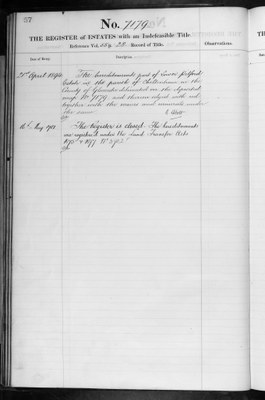 57
No. 7179
THE REGISTER of ESTATES with an Indefeasible Title.
Reference Vol. 28 Record of Title.
Observations
Date of Entry
Description
21st April 1896
The hereditaments part of
Estate in the parish of Cheltenham in the
County of Gloucester delineated on the deposited
map No 7179 and thereon edged with red
together with the mines and minerals under
the same
16th May 1902
The Register is closed. The hereditaments
are registered under the Land Transfer Acts
1875 & 1897